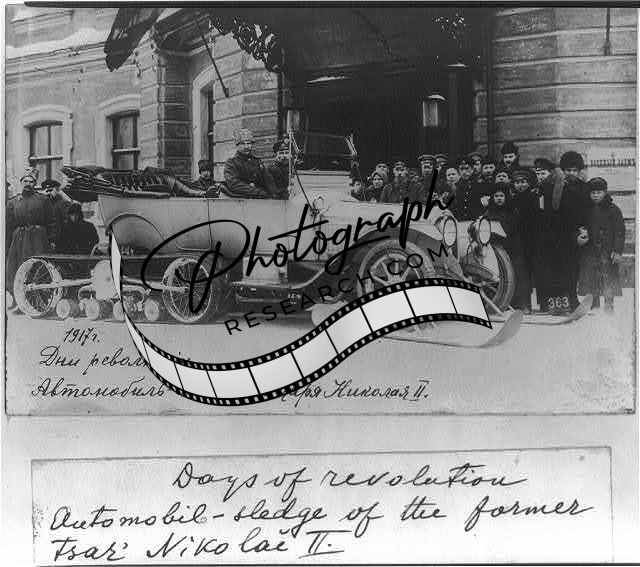 Photograph
RESEARCH.COM
363
1917г.
Дни
Автомобиль Царя Николая II.
Days of revolution
Automobil-sledge of the former
tsar' Nikolaĭ II.